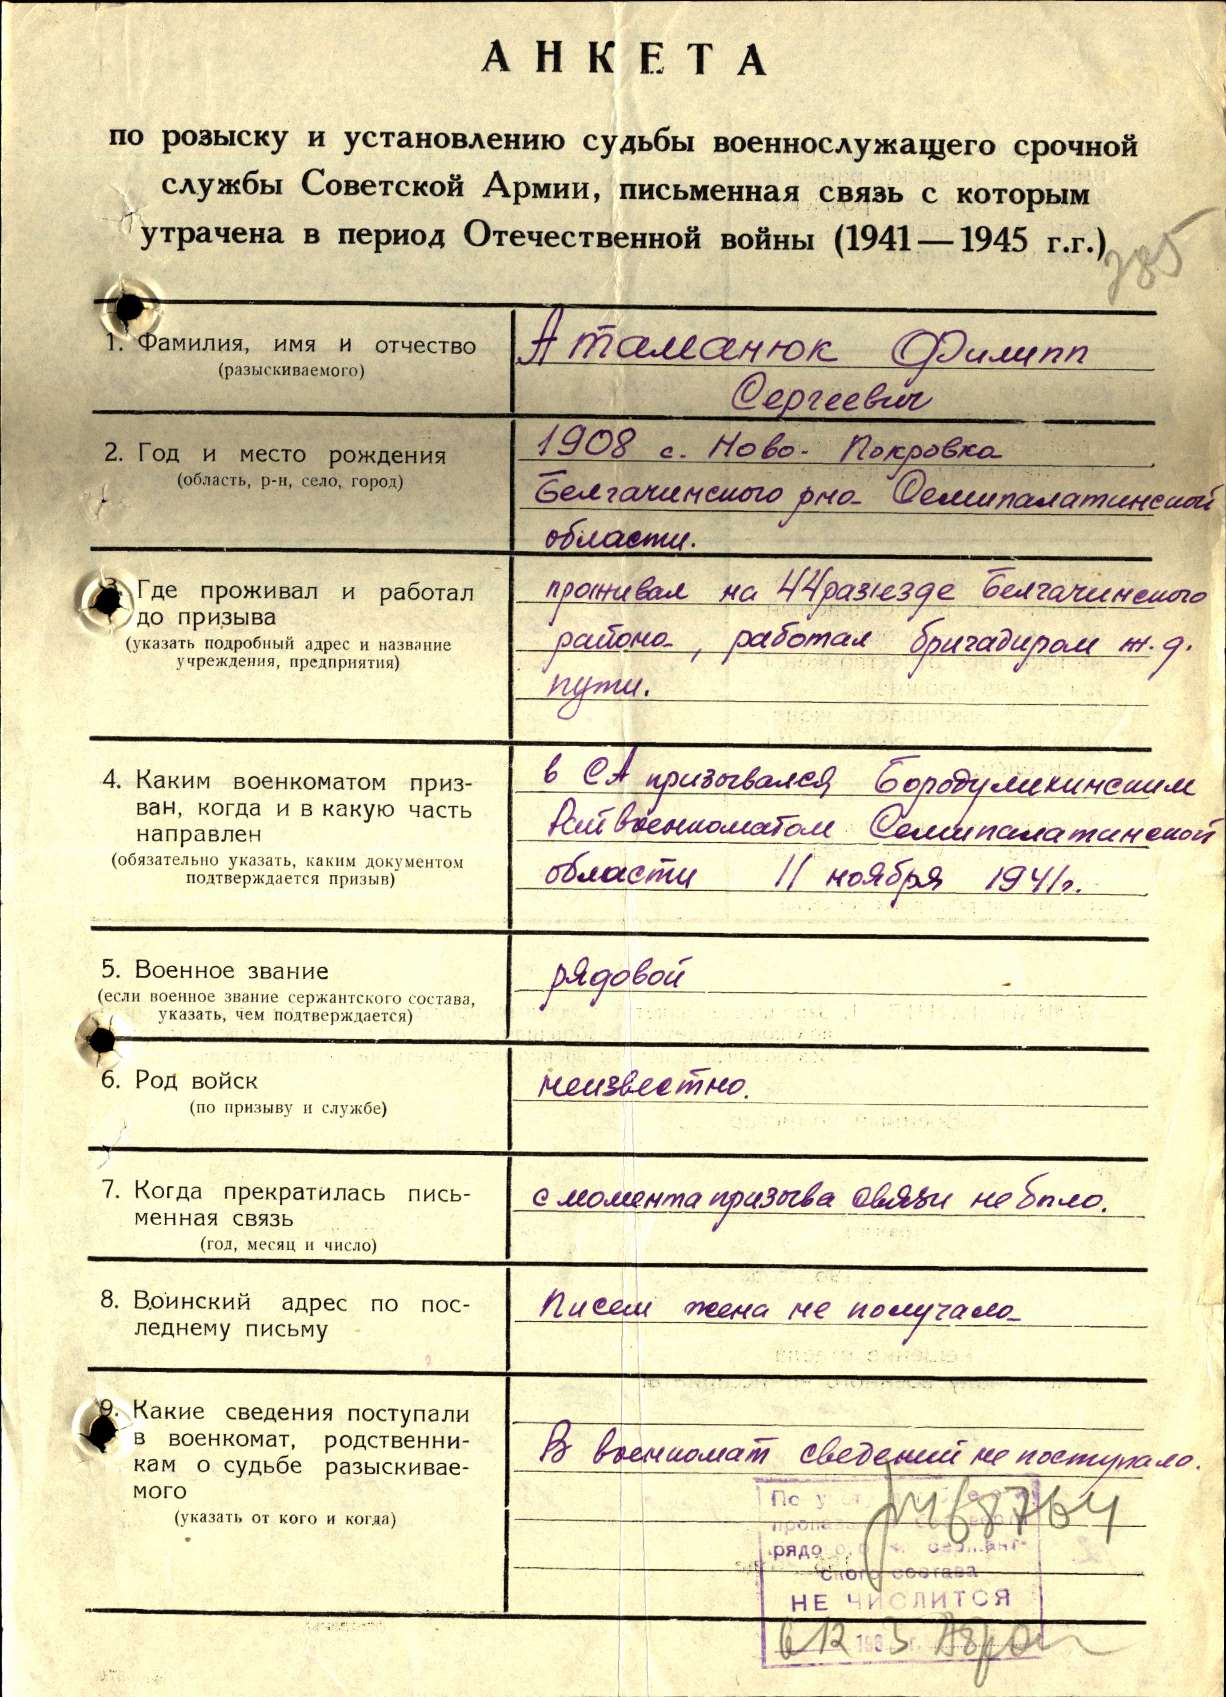 АНКЕТА
по розыску и установлению судьбы военнослужащего срочной
службы Советской Армии, письменная связь с которым
утрачена в период Отечественной войны (1941—1945 г.г.)
385
1. Фамилия, имя и отчество
(разыскиваемого)
Атаманюк Филипп
Сергеевич
2. Год и место рождения
(область, р-н, село, город)
1908 с. Ново-Покровка
Белгачинского р-на Семипалатинской
области.
3. Где проживал и работал
до призыва
(указать подробный адрес и название
учреждения, предприятия)
проживал на 44 разъезде Белгачинского
района, работал бригадиром ж.д.
пути.
4. Каким военкоматом приз-
ван, когда и в какую часть
направлен
(обязательно указать, каким документом
подтверждается призыв)
в СА призывался Бородулихинским
Райвоенкоматом Семипалатинской
области 11 ноября 1941г.
5. Военное звание
(если военное звание сержантского состава,
указать, чем подтверждается)
рядовой
6. Род войск
(по призыву и службе)
неизвестно.
7. Когда прекратилась пись-
менная связь
(год, месяц и число)
с момента призыва связи не было.
8. Воинский адрес по пос-
леднему письму
Писем жена не получала
9. Какие сведения поступали
в военкомат, родственни-
кам о судьбе разыскивае-
мого
(указать от кого и когда)
В военкомат сведений не поступало.
68764
ского состава
НЕ ЧИСЛИТСЯ
6 12 г.